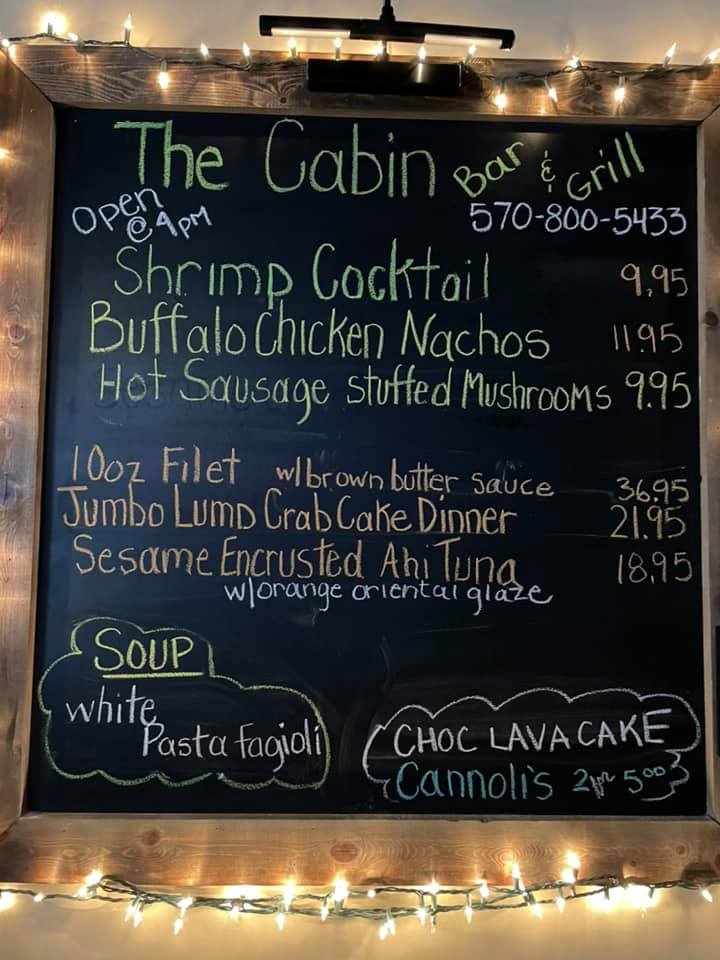 The Cabin Bar & Grill
Open @ 4pm
570-800-5433
Shrimp Cocktail 9.95
Buffalo Chicken Nachos 11.95
Hot Sausage stuffed Mushrooms 9.95
10oz Filet w/brown butter sauce 36.95
Jumbo Lump Crab Cake Dinner 21.95
Sesame Encrusted Ahi Tuna 18.95
w/orange oriental glaze
SOUP
white
Pasta fagioli
CHOC LAVA CAKE
Cannoli's 2 for 5.00